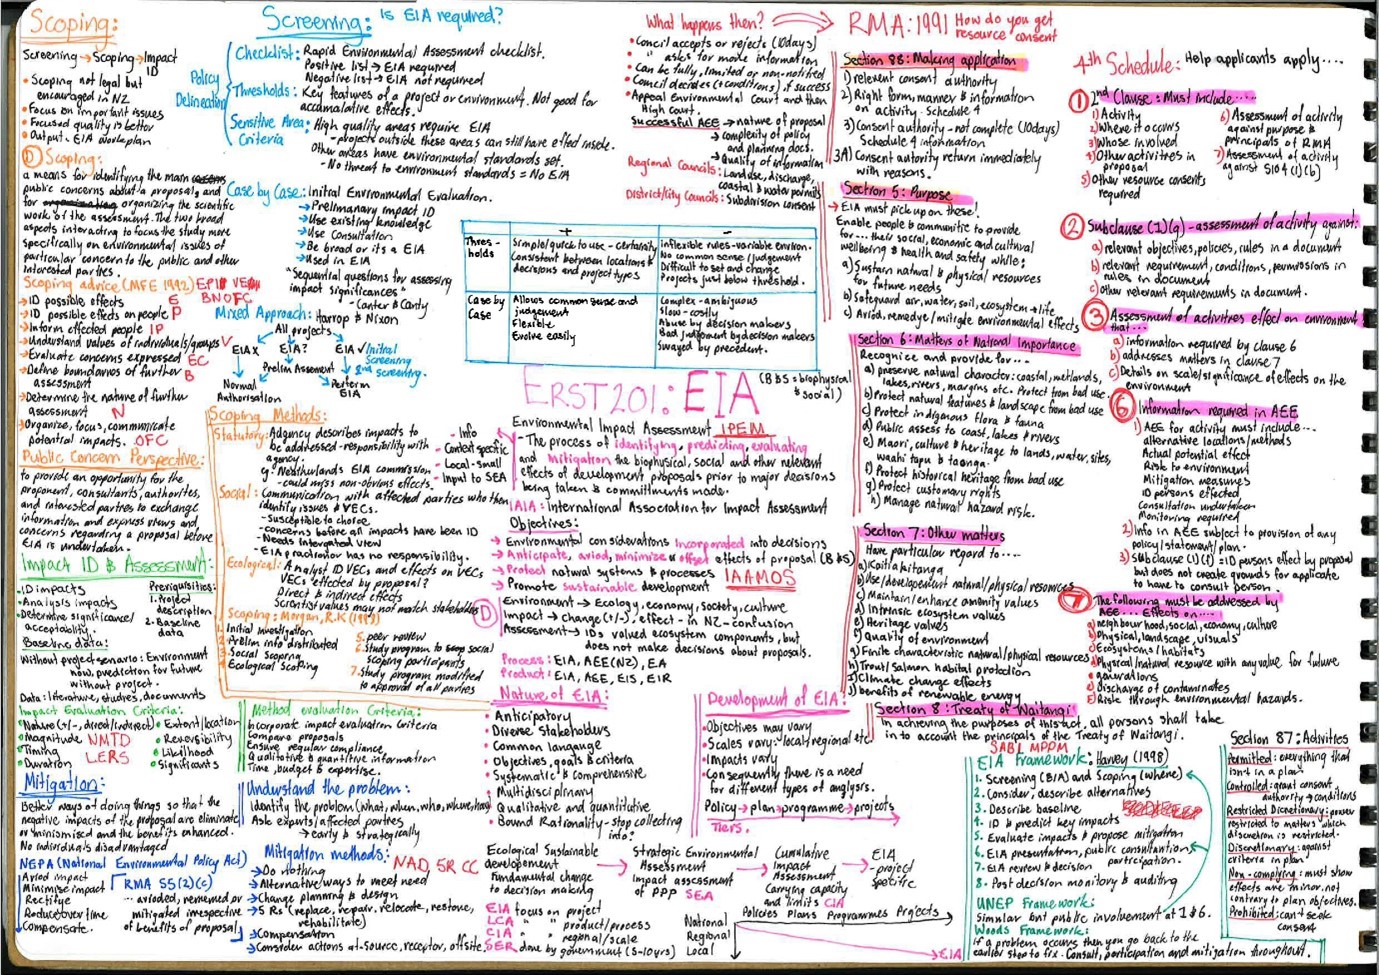 Scoping:
Screening → Scoping → Impact ID
• Scoping not legal but
encouraged in NZ
• Focus on important issues
• Focused quality is better
• Output - EIA workplan
D Scoping:
a means for identifying the main
public concerns about a proposal, and
for organizing the scientific
work of the assessment. The two broad
aspects interacting to focus the study more
specifically on environmental issues of
particular concern to the public and other
interested parties.
Scoping advice (MFE 1992) EPIP VE
BNOFC
→ ID possible effects E
→ ID possible effects on people P
→ Inform effected people IP
→ Understand values of individuals/groups V
→ Evaluate concerns expressed EC
→ Define boundaries of further B
assessment
→ Determine the nature of further
assessment N
→ Organize, focus, communicate
potential impacts. OFC
Public Concern Perspective:
to provide an opportunity for the
proponent, consultants, authorities,
and interested parties to exchange
information and express views and
concerns regarding a proposal before
EIA is undertaken.
Impact ID & Assessment:
• ID impacts
• Analysis impacts
• Determine significance/
acceptability
Prerequisities:
1. Project
description
2. Baseline
data
Baseline data:
Without project senario: Environment
now, prediction for future
without project.
Data: literature, studies, documents
Impact Evaluation Criteria:
• Nature (+/-, direct/indirect)
• Magnitude
• Timing
• Duration
NMTD
LERS
• Extent/location
• Reversibility
• Liklihood
• Significants
Mitigation:
Better ways of doing things so that the
negative impacts of the proposal are eliminate
or minismisced and the benefits enhanced.
No individuals disadvantaged
NEPA (National Environmental Policy Act)
Aviod impact
Minimise impact
Rectifye
Reduce over time
Compensate.
RMA S5(2)(c)
... avioded, remedied or
mitigated irrespective
of benefits of proposal
Screening: Is EIA required?
Policy
Delineation
Checklist: Rapid Environmental Assessment checklist.
Positive list → EIA required
Negative list → EIA not required
Thresholds: Key features of a project or environment. Not good for
accumalative effects.
Sensitive Area
Criteria
• High quality areas require EIA
- projects outside these areas can still have effect inside.
Other areas have environmental standards set.
- No threat to environment standards = No EIA
Case by Case: Initial Environmental Evaluation.
→ Prelimanary impact ID
→ Use existing knowledge
→ Use Consultation
→ Be broad or its a EIA
→ Used in EIA
"Sequential questions for assessing
impact significances"
- Canter & Canty
Mixed Approach: Harrop & Nixon
All projects
EIA X
EIA?
EIA ✓
Initial
Screening
2nd screening.
Prelim Assesment
Normal
Authorisation
Perform
EIA
Scoping Methods:
Statutory: Adgency describes impacts to
be addressed - responsibility with
agency.
eg Neatherlands EIA commission
- could miss non-obvious effects.
- Info
- Context specific
- Local - Small
- Input to SEA
Social: Communication with affected parties who then
identify issues & VECs.
- susceptible to choice
- concerns before all impacts have been ID
- Needs intergrated view
- EIA practioner has no responsibility.
Ecological: Analyst ID VECs and effects on VECs
VECs effected by proposal?
Direct & indirect effects
Scientist values may not match stakeholders
Scoping: Morgan, R.K (1993)
1. Initial investigation
2. Prelim info distributed
3. Social Scoping
4. Ecological Scoping
5. peer review
6. Study program to social
scoping participants
7. Study program modified
to approval of all parties
Method evaluation Criteria:
Incorporate impact evaluation Criteria
Compare proposals
Ensure regular compliance,
Qualitative & quantitive information
Time, budget & expertise.
Understand the problem:
Identify the problem (what, when, who, where, how)
Ask experts/affected parties
→ early & strategically
Mitigation methods: NAD, 5R CC
→ Do nothing
→ Alternative ways to meet need
→ Change planning & design
→ 5 Rs (replace, repair, relocate, restore,
rehabilitate)
→ Compensation
→ Consider actions at - Source, receptor, offsite
What happens then?
• Concil accepts or rejects (10days)
• " asks for more information
• Can be fully, limited or non-notified
• Council decides (+conditions) if success
• Appeal Environmental Court and then
High court.
Successful AEE → nature of proposal
→ complexity of policy
and planning docs.
→ Quality of information
Regional Councils: Landuse, discharge,
coastal & water permits
District/City Councils: Subdivision consent
+
-
Thres-
holds
Simple/quick to use - certainity
Consistent between locations &
decisions and project types
inflexible rules - variable environ.
No common sense/judgement
Difficult to set and change
Projects just below threshold.
Case by
Case
Allows common sense and
judgement
Flexible
Evolve easily
Complex - ambiguous
Slow - costly
Abuse by decision makers
Bad judgement by decision makers
Swayed by precedent.
ERST201: EIA (B & S = biophysical
& social)
Environmental Impact Assessment IPEM
- The process of identifying, predicting, evaluating
and mitigation the biophysical, social and other relevent
effects of development proposals prior to major decisions
being taken & commitments made.
IAIA: International Association for Impact Assessment
Objectives:
→ Environmental considerations incorporated into decisions
→ Anticipate, aviod, minimise & offset effects of proposal (B & S)
→ Protect natural systems & processes IAAMOS
→ Promote sustainable development
D Environment → Ecology, economy, society, culture
Impact → change (+/-), effect - in NZ - confusion
Assessment → IDs valued ecosystem components, but
does not make decisions about proposals.
Process: EIA, AEE (NZ), EA
Product: EIA, AEE, EIS, EIR
Nature of EIA:
• Anticipatory
• Diverse Stakeholders
• Common language
• Objectives, goals & criteria
• Systematic & comprehensive
• Multidisciplinary
• Qualitative and quantitive
• Bound Rationality - stop collecting
info?
Development of EIA:
• Objectives may vary
• Scales vary: local/regional etc
• Impacts vary
• Consequently there is a need
for different types of anylgsis.
Policy → plan → programme → projects
Tiers.
Ecological Sustainable
developement
Fundamental change
to decision making
→ Strategic Environmental
Assessment
Impact assessment
of PPP SEA
→ Cumulative
Impact
Assessment
Carrying capacity
and limits CIA
→ EIA
- project
Specific
EIA focus on project
LCA " " product/process
CIA " " regional/scale
SER done by government (5-10yrs)
Policies Plans Programmes Projects
National
Regional
Local
EIA
RMA: 1991 How do you get
resource consent
Section 88: Making application
1) relevent consent authority
2) Right form, manner & information
on activity - Schedule 4
3) Consent authority - not complete (10days)
Schedule 4 information
3A) Consent autority return immediately
with reasons.
Section 5: Purpose
→ EIA must pick up on these!
Enable people & communitie to provide
for... their social, economic and cultural
wellbeing & health and safety while:
a) Sustain natural & physical resources
for future needs
b) Safeguard air, water, soil, ecosystem → life
c) Aviod, remedye/mitigate environmental effects
Section 6: Matters of National Importance
Recognice and provide for....
a) preserve natural character: coastal, wetlands,
lakes, rivers, margins etc. Protect from bad use.
b) Protect natural features & landscape from bad use
c) Protect indiganous flora & fauna
d) Public assess to coast, lakes & rivers
e) Maori, culture & heritage to lands, water, sites,
waahi tapu & taonga.
f) Protect historical heritage from bad use
g) Protect customary rights
h) Manage natural hazard risk.
Section 7: Other matters
Have particular regard to....
a) Kaitiakitanga
b) Use/developement natural/physical resources
c) Maintain/enhance amenity values
d) Intrinsic ecosystem values
e) Heritage values
f) quality of environment
g) Finite characteristic natural/physical resources
h) Trout/salmon habitat protection
i) Climate change effects
j) benefits of renewable energy
Section 8: Treaty of Waitangi
In achieving the purposes of this act, all persons shall take
in to account the principals of the Treaty of Waitangi.
SABI MPPM
EIA Framework: Harvey (1998)
1. Screening (B/A) and Scoping (where)
2. Consider, describe alternatives
3. Describe baseline
4. ID & predict key impacts
5. Evaluate impacts & propose mitigation
6. EIA presentation, public consultantion
participation.
7. EIA review & decision
8. Post decision monitory & auditing
UNEP Framework:
Simular but public involvement at 1 & 6.
Woods Framework:
If a problem occurs then you go back to the
earlier step to fix. Consult, participation and mitigation throughout.
4th Schedule: Help applicants apply....
1 2nd Clause: Must include....
1) Activity
2) Where it occurs
3) Whose involved
4) Other activitives in
proposal
5) Other resource consents
required
6) Assessment of activity
against purpose &
principals of RMA
7) Assessment of activity
against S104(1)(b)
2 Subclause (1)(g) - assessment of activity against:
a) relevant objectives, policies, rules in a document
b) relevant requirement, conditions, permissions in
rules in document
c) Other relevant requirements in document.
3 Assessment of activities effect on environment
that....
a) information required by clause 6
b) addresses matters in clause 7
c) Details on scale/significance of effects on the
environment
6 Information required in AEE
1) AEE for activity must include...
alternative locations/methods
Actual potential effect
Risk to environment
Mitigation measures
ID persons effected
Consultation undertaken
Monitoring required
2) Info in AEE subject to provision of any
policy/statement/plan.
3) Subclause (1)(f) = ID persons effect by proposal
but does not create grounds for applicate
to have to consult person.
7 The following must be addressed by
AEE.... Effects on....
a) neighbourhood, social, economy, culture
b) Physical, landscape, visuals
c) Ecosystems/habitats
d) Physical/natural resource with any value for future
generations
e) discharge of contaminates
f) Risk through environmental hazards.
Section 87: Activities
Permitted: everything that
isn't in a plan
Controlled: grant consent
authority → conditions
Restricted Discretionary: power
restricted to matters which
discretion is restricted.
Discretionary: against
criteria in plan
Non-complying: must show
effects are minor, not
contrary to plan objectives.
Prohibited: can't seek
consent